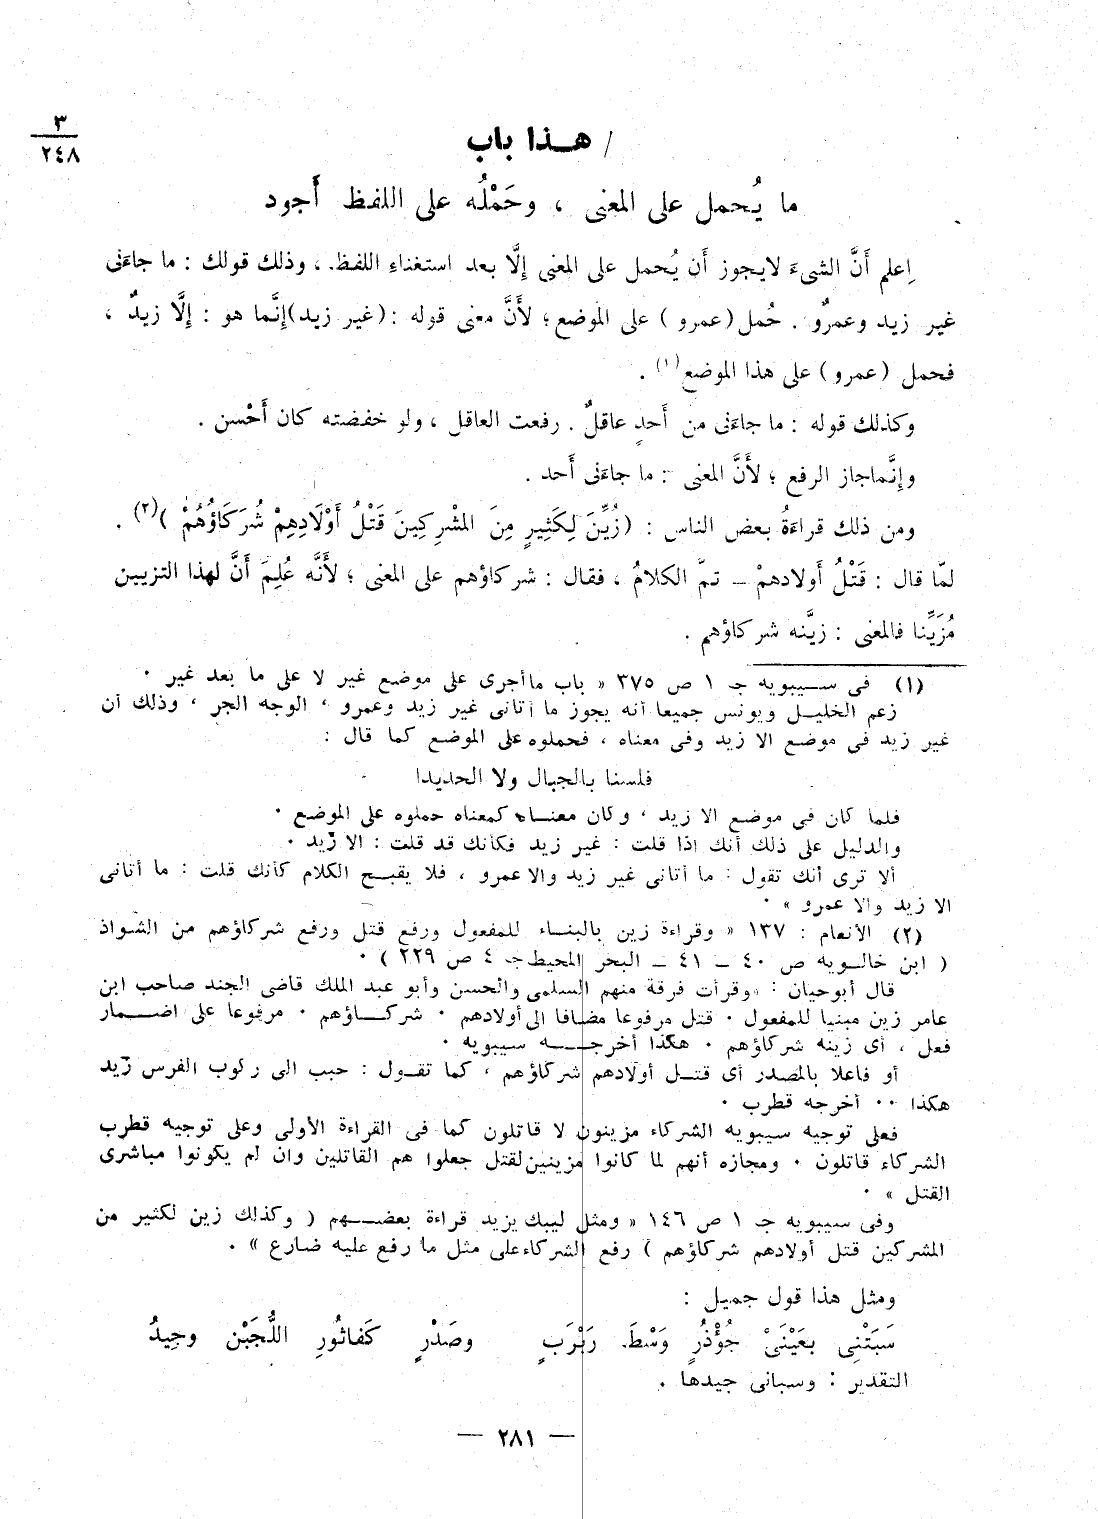 ٣
٢٤٨
/ هـذا باب
ما يُحمل على المعنى ، وحَمْلُه على اللفظ أَجود
اِعلم أَنَّ الشىءَ لايجوز أَن يُحمل على المعنى إلَّا بعد استغناءِ اللفظ. ، وذلك قولك : ما جاءَنى
غير زيد وعمرٌو . حُمل (عمرو ) على الموضع؛ لأَنَّ معنى قوله : (غير زيد)إنَّما هو : إلَّا زيدٌ ،
فحمل (عمرو) على هذا الموضع(١) .
وكذلك قوله : ما جاءَنى من أَحدٍ عاقلٌ . رفعت العاقل ، ولو خفضته كان أَحْسن .
وإنَّماجاز الرفع ؛ لأَنَّ المعنى : ما جاءَنى أَحد .
ومن ذلك قراءَةُ بعض الناس : (زُيِّنَ لِكَثِيرٍ مِنَ المشْرِكِينَ قَتْلُ أَوْلَادِهِمْ شُرَكَاؤُهُمْ )(٢) .
لمّا قال : قَتْلُ أَولادهمْ – تمّ الكلامُ ، فقال : شركاؤهم على المعنى ؛ لأَنَّه عُلِمَ أَنَّ لهذا التزيين
مُزَيِّنا فالمعنى : زيَّنه شركاؤهم .
(١) فى سـيبويه جـ ١ ص ٣٧٥ « باب ما أجرى على موضع غير لا على ما بعد غير ٠
زعم الخليـل ويونس جميعا أنه يجوز ما أتانى غير زيد وعمرو ، الوجه الجر ، وذلك أن
غير زيد فى موضع الا زيد وفى معناه ، فحملوه على الموضع كما قال :
فلسنا بالجبال ولا الحديدا
فلما كان فى موضع الا زيد ، وكان معنـاه كمعناه حملوه على الموضع ٠
والدليل على ذلك أنك اذا قلت : غير زيد فكأنك قد قلت : الا زيد ٠
ألا ترى أنك تقول : ما أتانى غير زيد والا عمرو ، فلا يقبـح الكلام كأنك قلت : ما أتانى
الا زيد والا عمرو » ٠
(٢) الأنعام : ١٣٧ « وقراءة زين بالبنـاء للمفعول ورفع قتل ورفع شركاؤهم من الشواذ
( ابن خالـويه ص ٤٠ – ٤١ – البحر المحيط جـ ٤ ص ٢٢٩ ) ٠
قال أبوحيان : «وقرأت فرقة منهم السلمى والحسن وأبو عبد الملك قاضى الجند صاحب ابن
عامر زين مبنيا للمفعول ٠ قتل مرفوعا مضافا الى أولادهم ٠ شركـاؤهم ٠ مرفوعا على اضـمار
فعل ، أى زينه شركاؤهم ٠ هكذا أخرجـه سيبويه ٠
أو فاعلا بالمصدر أى قتـل أولادهم شركاؤهم ، كما تقـول : حبب الى ركوب الفرس زيد
هكذا ٠٠ أخرجه قطرب ٠
فعلى توجيه سيبويه الشركاء مزينون لا قاتلون كما فى القراءة الأولى وعلى توجيه قطرب
الشركاء قاتلون ٠ ومجازه أنهم لما كانوا مزينين لقتل جعلوا هم القاتلين وان لم يكونوا مباشرى
القتل » ٠
وفى سيبويه جـ ١ ص ١٤٦ « ومثل ليبك يزيد قراءة بعضـهم ( وكذلك زين لكثير من
المشركين قتل أولادهم شركاؤهم ) رفع الشركاءعلى مثل ما رفع عليه ضارع » ٠
ومثل هذا قول جميل :
سَبَتْنِى بعَيْنَىْ جُؤْذُرٍ وَسْطَ. رَبْرَبٍ وصَدْرٍ كَفاثُورِ اللُّجَيْن وجِيدُ
التقدير : وسبانى جيدها .
— ٢٨١ —